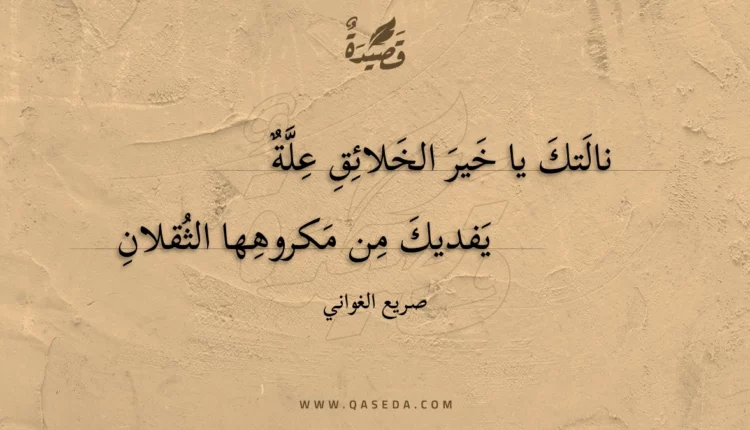 قَصِيدَةٌ
نالَتكَ يا خَيرَ الخَلائِقِ عِلَّةٌ
يَفديكَ مِن مَكروهِها الثُقلانِ
صريع الغواني
WWW.QASEDA.COM